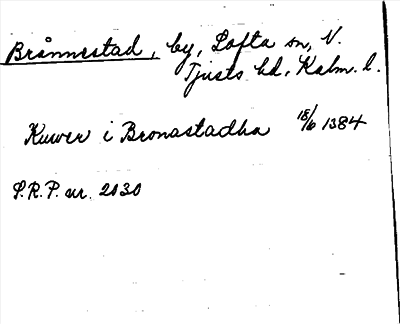 Brånnestad, by, Lofta sn, N.
Tjusts hd, Kalm. l.
Kuwer i Bronastadha 18/6 1384
S.R.P. nr. 2030